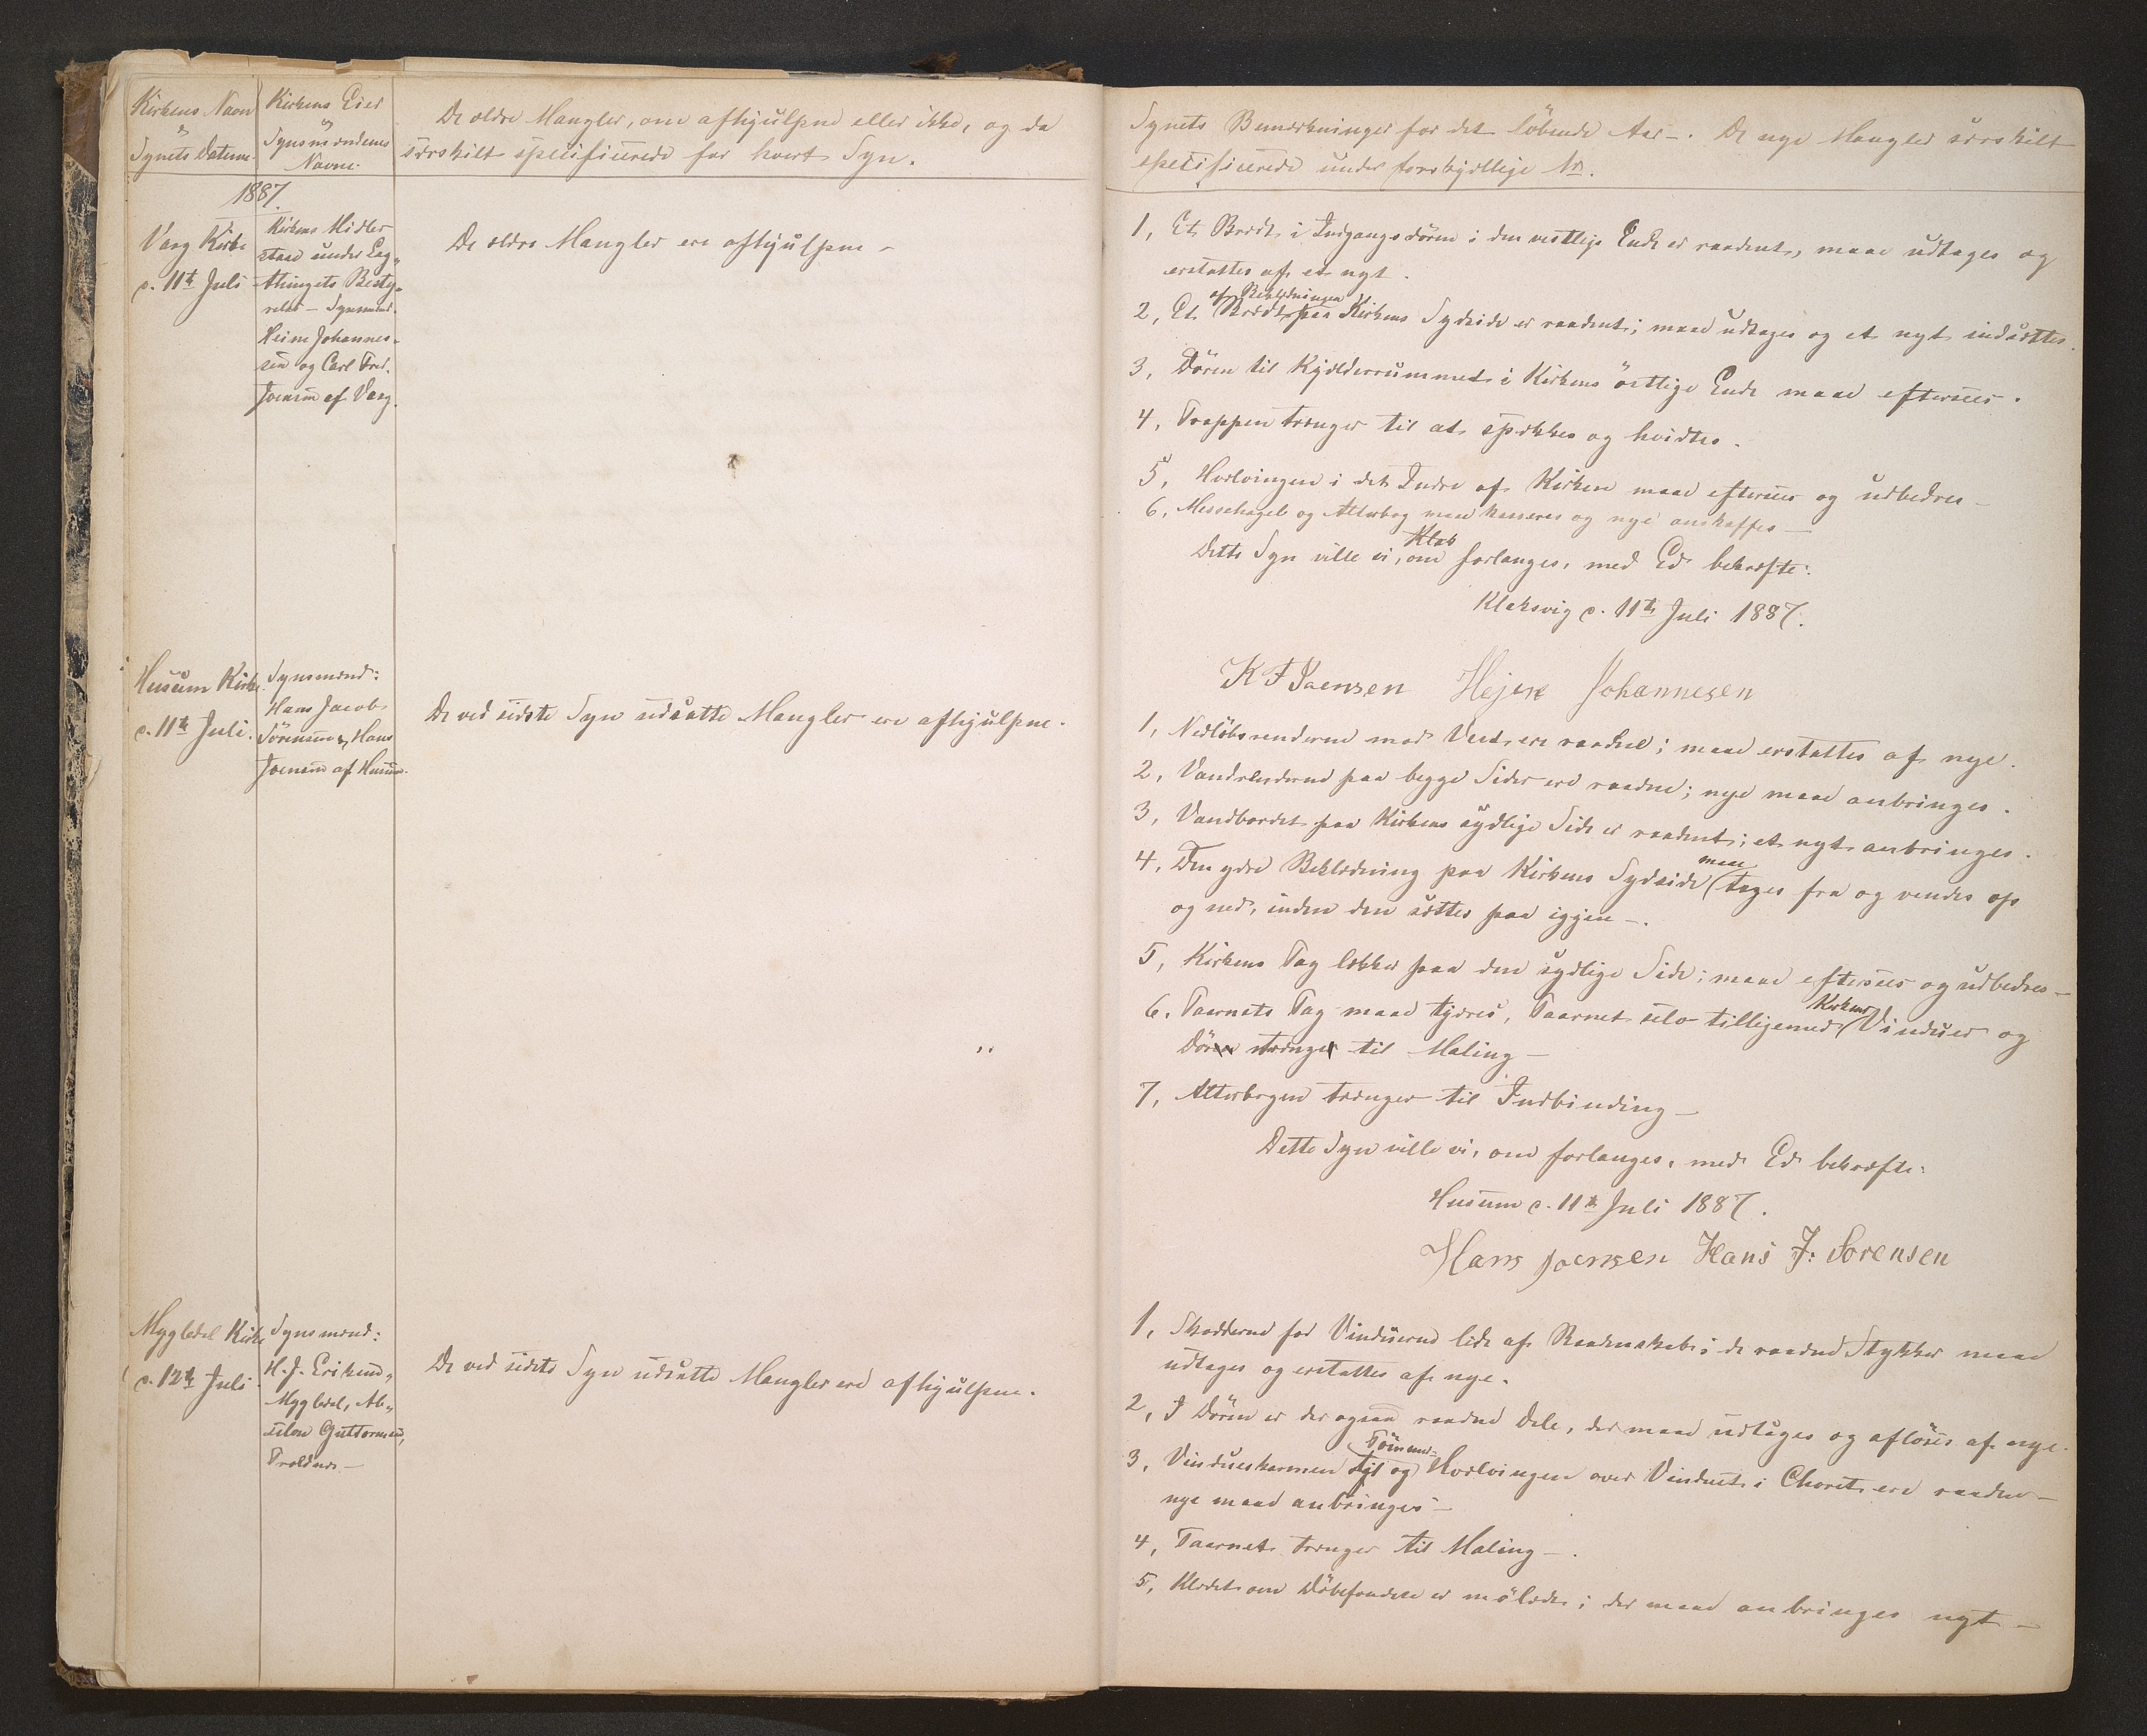 Kirkens Navn
og
Synets Datum.
Kirkens Eier
og
Synsmændenes
Navne.
De ældre Mangler, om afhjulpne eller ikke, og da
særskilt specificerede for hvert Syn.
1887.
Vaag Kirke
d. 11te Juli
Kirkens Midler
staae under Lag-
thingets Besty-
relse – Synsmænd:
Heine Johannes-
sen og Carl Fred.
Joensen af Vaag.
De ældre Mangler ere afhjulpne –
Husum Kirke
d. 11te Juli.
Synsmænd:
Hans Jacob
Sörensen & Hans
Joensen af Husum.
De ved sidste Syn udsatte Mangler ere afhjulpne.
Mygledal Kirke
d. 12te Juli
Synsmænd:
H. J. Eriksen,
Mygledal, Ab-
salon Guttormsen,
Trøldnæs –
De ved sidste Syn udsatte Mangler ere afhjulpne.
Synets Bemærkninger for det löbende Aar –. De nye Mangler særskilt
specificerede under forskjellige Nr.
1, Et Brædt i Indgangsdören i den vestlige Ende er raadent, maae udtages og
erstattes af et nyt.
2, Et Brædt af Beklædningen paa Kirkens Sydside er raadent; maae udtages og et nyt indsættes.
3, Dören til Kjælderrummet i Kirkens östlige Ende maae eftersees.
4, Trappen trænger til at spækkes og hvidtes.
5, Hvælvingen i det Indre af Kirken maae eftersees og udbedres –
6, Messehagel og Alterbog maae kasseres og nye anskaffes –
Dette Syn ville vi, om forlanges, med Ed bekræfte:
Klab
Klaksvig d. 11te Juli 1887.
K F Joensen Hejne Johannesen
1, Nedløbsrenderne mod Vest ere raadne; maae erstattes af nye.
2, Vandrenderne paa begge Sider ere raadne; nye maae anbringes.
3, Vandbordet paa Kirkens sydlige Side er raadent; et nyt anbringes.
4, Den ydre Beklædning paa Kirkens Sydside maae tages fra og vendes op
og ned, inden den sættes paa igjen –.
5, Kirkens Tag lækker paa den sydlige Side; maae eftersees og udbedres –
6, Taarnets Tag maae tjæres, Taarnet selv tilligemed Kirkens Vinduer og
Dör trænge til Maling –
7, Alterbogen trænger til Indbinding –
Dette Syn ville vi, om forlanges, med Ed bekræfte:
Husum d. 11te Juli 1887.
Hans Joensen Hans J: Sorensen
1, Skodderne for Vinduerne lide af Raadenskab; de raadne Stykker maae
udtages og erstattes af nye.
2, I Dören er der ogsaa raadne Dele, der maae udtages og aflöses af nye.
3, Vindueskarmen og Hvælvingen over Vinduet i Choret ere raadne –
nye maae anbringes –
4, Taarnet trænger til Maling –.
5, Klædet om Döbefonden er mölædt; der maae anbringes nyt –